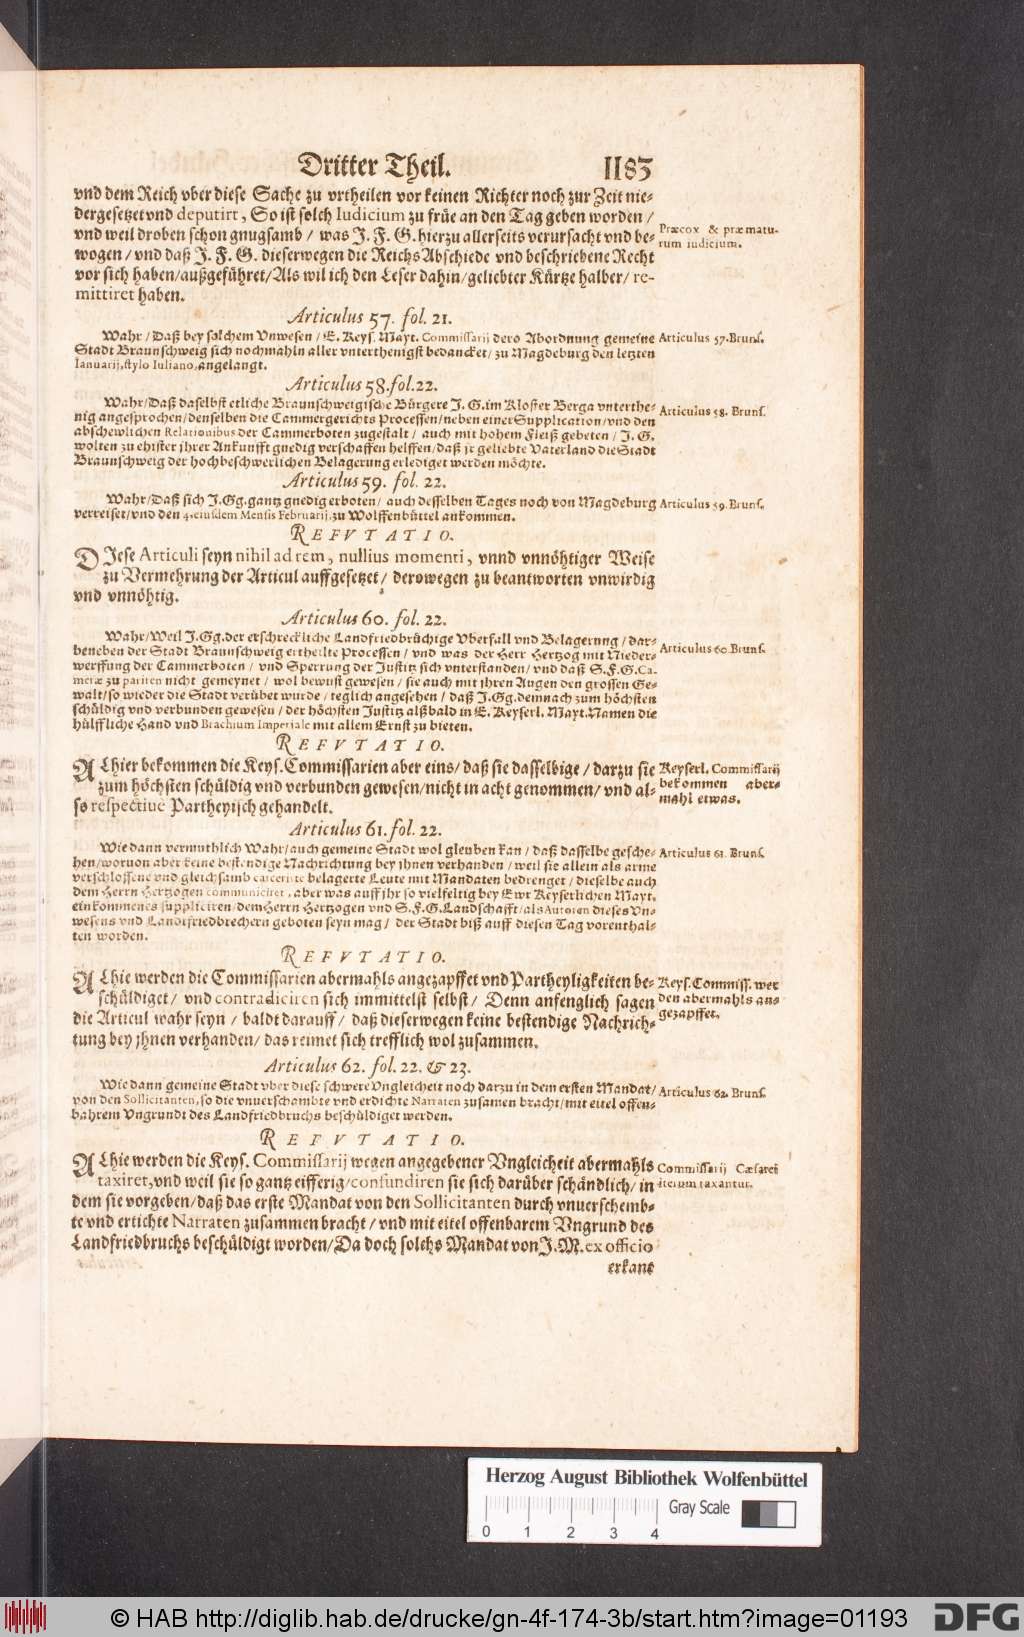 Dritter Theil. 1183
vnd dem Reich vber diese Sache zu vrtheilen vor keinen Richter noch zur Zeit nie-
dergesetzet vnd deputirt, So ist solch Iudicium zu früe an den Tag geben worden /
vnd weil droben schon gnugsamb / was J. F. G. hierzu allerseits verursacht vnd be-
wogen / vnd daß J. F. G. dieserwegen die Reichs Abschiede vnd beschriebene Recht
vor sich haben / außgeführet / Als wil ich den Leser dahin / geliebter Kürtze halber / re-
mittiret haben.
Præcox & præmatu-
rum iudicium.
Articulus 57. fol. 21.
Wahr / Daß bey solchem Vnwesen / E. Keys. Mayt. Commissarij dero Abordnung gemeine
Stadt Braunschweig sich nochmahln aller vnterthenigst bedancket / zu Magdeburg den letzten
Ianuarij, stylo Iuliano, angelangt.
Articulus 57. Bruns.
Articulus 58. fol. 22.
Wahr / Daß daselbst etliche Braunschweigische Bürgere J. G. im Kloster Berga vnterthe-
nig angesprochen / denselben die Cammergerichts Processen / neben einer Supplication / vnd den
abschewlichen Relationibus der Cammerboten zugestalt / auch mit hohem Fleiß gebeten / J. G.
wolten zu ehister jhrer Ankunfft gnedig verschaffen helffen / daß jr geliebte Vaterland die Stadt
Braunschweig der hochbeschwerlichen Belagerung erlediget werden möchte.
Articulus 58. Bruns.
Articulus 59. fol. 22.
Wahr / Daß sich J. Gg. gantz gnedig erboten / auch desselben Tages noch von Magdeburg
verreiset / vnd den 4. eiusdem Mensis Februarij, zu Wolffenbüttel ankommen.
Articulus 59. Bruns.
REFVTATIO.
DIese Articuli seyn nihil ad rem, nullius momenti, vnnd vnnöhtiger Weise
zu Vermehrung der Articul auffgesetzet / derowegen zu beantworten vnwirdig
vnd vnnöhtig.
Articulus 60. fol. 22.
Wahr / Weil J. Gg. der erschreckliche Landfriedbrüchige Vberfall vnd Belagerung / dar-
beneben der Stadt Braunschweig ertheilte Processen / vnd was der Herr Hertzog mit Nieder-
werffung der Cammerboten / vnd Sperrung der Justitz sich vnterstanden / vnd daß S. F. G. Ca-
meræ zu pariren nicht gemeynet / wol bewust gewesen / sie auch mit jhren Augen den grossen Ge-
walt / so wieder die Stadt verübet wurde / teglich angesehen / daß J. Gg. demnach zum höchsten
schüldig vnd verbunden gewesen / der höchsten Justitz alßbald in E. Keyserl. Mayt. Namen die
hülffliche Hand vnd Brachium Imperiale mit allem Ernst zu bieten.
Articulus 60. Bruns.
REFVTATIO.
ALhier bekommen die Keys. Commissarien aber eins / daß sie dasselbige / darzu sie
zum höchsten schüldig vnd verbunden gewesen / nicht in acht genommen / vnd al-
so respectiuè Partheyisch gehandelt.
Keyserl. Commissarij
bekommen aber-
mahl etwas.
Articulus 61. fol. 22.
Wie dann vermuthlich Wahr / auch gemeine Stadt wol gleuben kan / daß dasselbe gesche-
hen / woruon aber keine bestendige Nachrichtung bey jhnen verhanden / weil sie allein als arme
verschlossene vnd gleichsamb carcerirte belagerte Leute mit Mandaten bedrenget / dieselbe auch
dem Herrn Hertzogen communiciret, aber was auff jhr so vielfeltig bey Ewr Keyserlichen Mayt.
einkommenes suppliciren / dem Herrn Hertzogen vnd S. F. G. Landschafft / als Autoren dieses Vn-
wesens vnd Landtfriedbrechern geboten seyn mag / der Stadt biß auff diesen Tag vorenthal-
ten worden.
Articulus 61. Bruns.
REFVTATIO.
ALhie werden die Commissarien abermahls angezapffet vnd Partheyligkeiten be-
schüldiget / vnd contradiciren sich immittelst selbst / Denn anfenglich sagen
die Articul wahr seyn / baldt darauff / daß dieserwegen keine bestendige Nachrich-
tung bey jhnen verhanden / das reimet sich trefflich wol zusammen.
Keys. Commiss. wer
den abermahls an-
gezapffet.
Articulus 62. fol. 22. & 23.
Wie dann gemeine Stadt vber diese schwere Vngleicheit noch darzu in dem ersten Mandat /
von den Sollicitanten, so die vnuerschambte vnd erdichte Narraten zusamen bracht / mit eitel offen-
bahrem Vngrundt des Landfriedbruchs beschüldiget werden.
Articulus 62. Bruns.
REFVTATIO.
ALhie werden die Keys. Commissarij wegen angegebener Vngleicheit abermahls
taxiret, vnd weil sie so gantz eifferig / confundiren sie sich darüber schändlich / in
dem sie vorgeben / daß das erste Mandat von den Sollicitanten durch vnuerschemb-
te vnd ertichte Narraten zusammen bracht / vnd mit eitel offenbarem Vngrund des
Landfriedbruchs beschüldigt worden / Da doch solchs Mandat von J. M. ex officio
erkant
Commissarij Cæsarei
iterum taxantur.
Herzog August Bibliothek Wolfenbüttel
Gray Scale
0 1 2 3 4
© HAB http://diglib.hab.de/drucke/gn-4f-174-3b/start.htm?image=01193
DFG